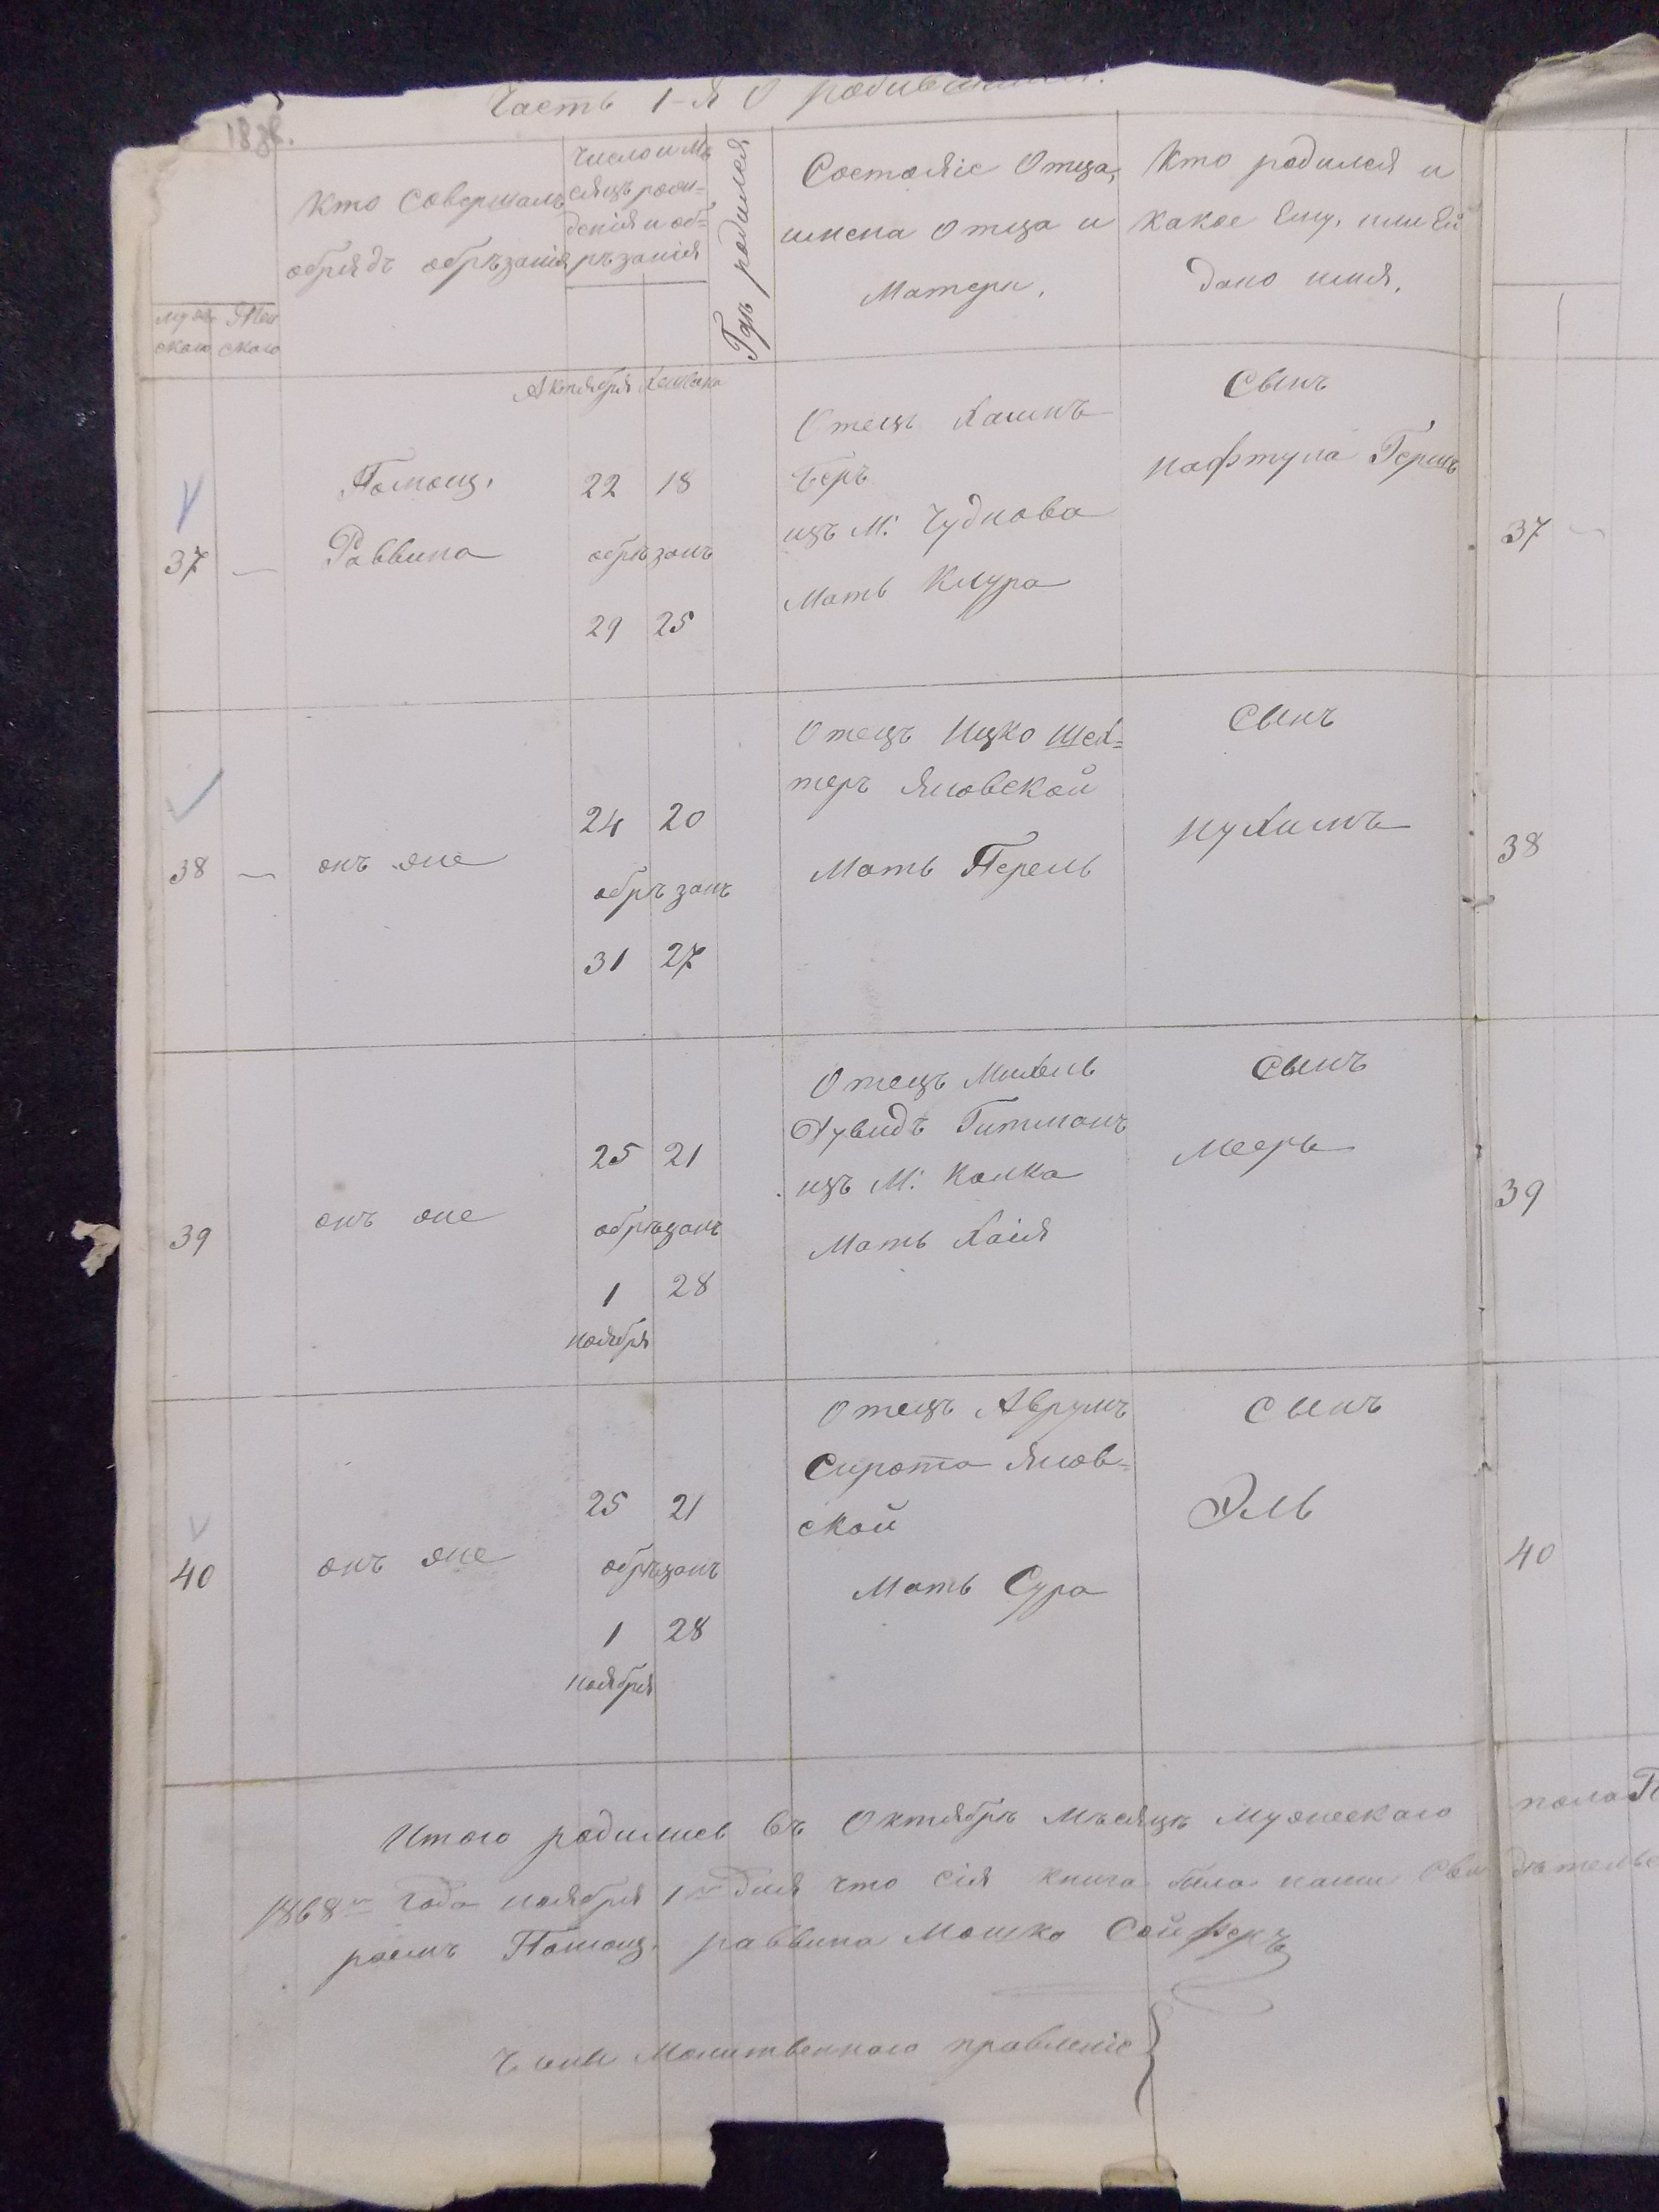 Часть 1-я О родившихся.
Кто совершалъ
обрядъ обрѣзанія
число и мѣ
сяцъ рож=
денія и об=
рѣзанія
Гдѣ родился
Состояніе Отца,
имена Отца и
Матери,
Кто родился и
какое Ему, или Ей
дано имя,
муже
скаго
жен
скаго
Актября Хешвана
37 —
Помощ,
Раввина
22 18
обрѣзанъ
29 25
Отецъ Хаимъ
Беръ
изъ М. Чуднова
Мать Клура
Сынъ
Нафтула Гершъ
37 —
38 —
онъ же
24 20
обрѣзанъ
31 27
Отецъ Ицко Шех=
теръ Яновской
Мать Перель
Сынъ
Нухимъ
38
39
онъ же
25 21
обрѣзанъ
1 28
ноября
Отецъ Михель
Дувидъ Гитманъ
изъ М. Колка
Мать Хаія
Сынъ
Мееръ
39
40
онъ же
25 21
обрѣзанъ
1 28
ноября
Отецъ Аврумъ
Сирота Янов=
ской
Мать Сура
Сынъ
Эль
40
Итого родилися въ Октябрѣ Мѣсяцѣ Мужескаго пола
1868го года ноября 1го дня что сія книга была нами
раемъ Помощ. раввина Мошко Сойферъ
Члены Молитвенного правленіе